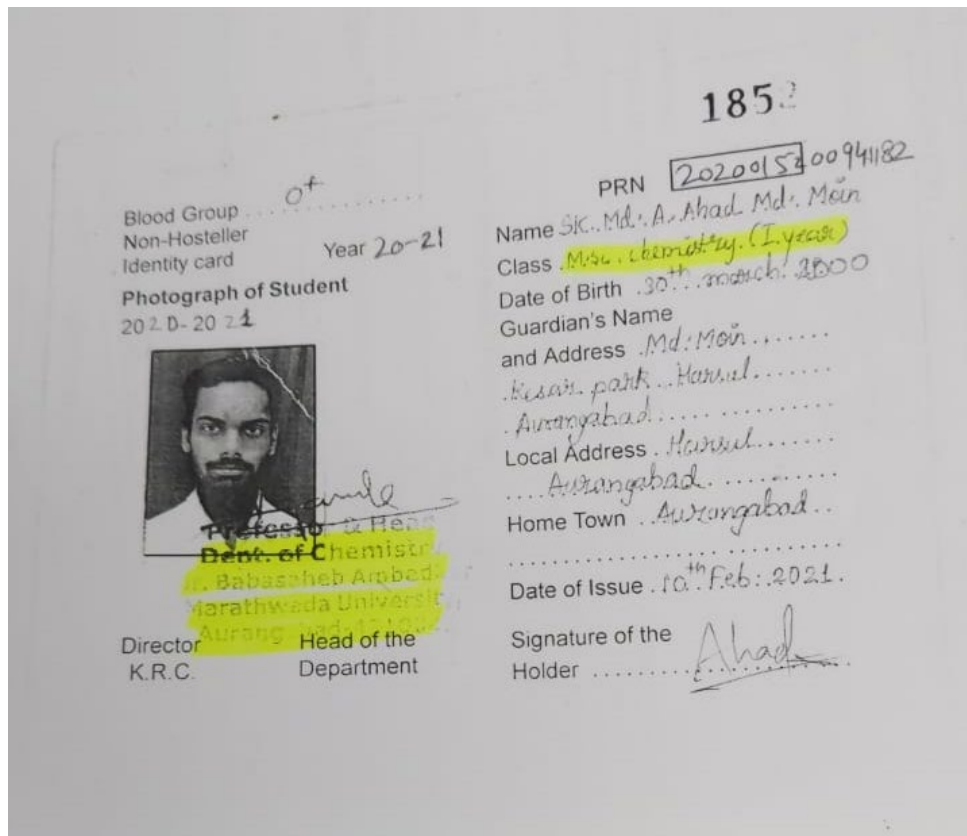 185
Blood Group O+
Non-Hosteller
Identity card Year 20-21
Photograph of Student
2020-2021
Professor & Head
Dept. of Chemistr
Babasaheb Ambed
Marathwada Universit
Director
K.R.C.
Head of the
Department
PRN 2020015200941182
Name Sk. Md. A. Ahad Md. Moin
Class M.sc. chemistry (I year)
Date of Birth 30th march 2000
Guardian's Name
and Address Md. Moin
Kesar park Harsul
Aurangabad
Local Address Harsul
Aurangabad
Home Town Aurangabad
Date of Issue 10th Feb: 2021.
Signature of the
Holder Ahad